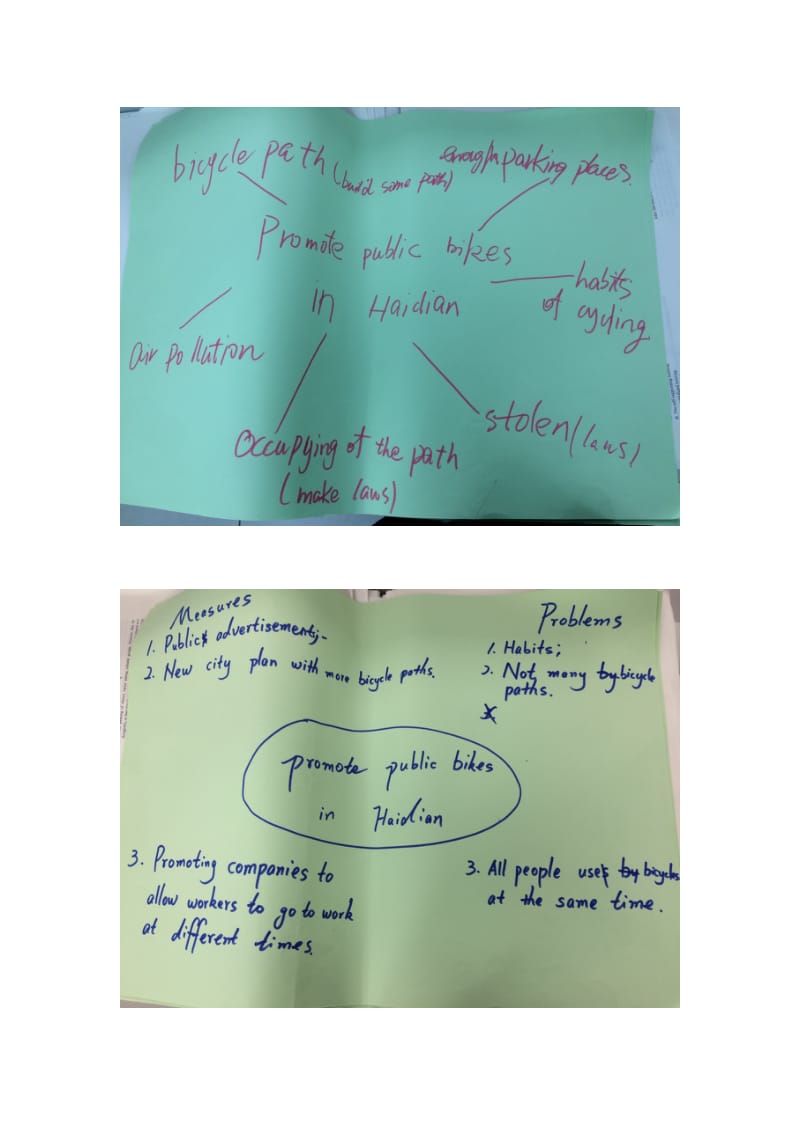 bicycle path (build some path)
enough parking places.
Promote public bikes
in Haidian
habits
of cycling
air pollution
stolen (laws)
Occupying of the path
(make laws)
Measures
1. Public advertisement;
2. New city plan with more bicycle paths.
Problems
1. Habits;
2. Not many bicycle
paths.
promote public bikes
in Haidian
3. Promoting companies to
allow workers to go to work
at different times.
3. All people use bicycles
at the same time.